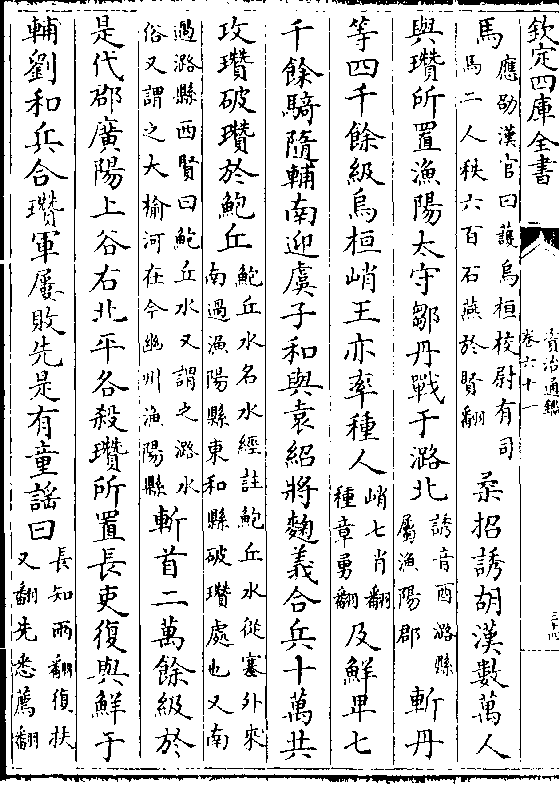 欽定四庫全書
資治通鑑
卷六十一
三十四
馬應劭漢官曰護烏桓校尉有司馬二人秩六百石燕於賢翻柔招誘胡漢數萬人
與瓚所置漁陽太守鄒丹戰于潞北誘音酉潞縣屬漁陽郡斬丹
等四千餘級烏桓峭王亦率種人峭七肖翻種章勇翻及鮮卑七
千餘騎隨輔南迎虞子和與袁紹將麴義合兵十萬共
攻瓚破瓚於鮑丘鮑丘水名水經註鮑丘水從塞外來南過漁陽縣東和縣破瓚處也又南
過潞縣西賢曰鮑丘水又謂之潞水俗又謂之大榆河在今幽州漁陽縣斬首二萬餘級於
是代郡廣陽上谷右北平各殺瓚所置長吏復與鮮于
輔劉和兵合瓚軍屢敗先是有童謡曰長知兩翻復扶又翻先悉薦翻